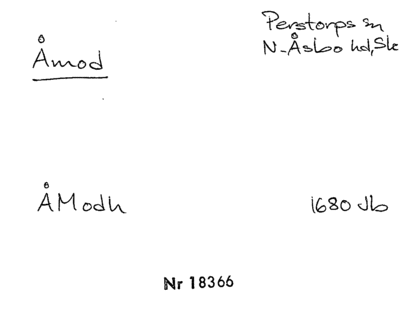 Åmod
Perstorps sn
N-Åsbo hd, Sk
ÅModh
1680 Jb
Nr 18366